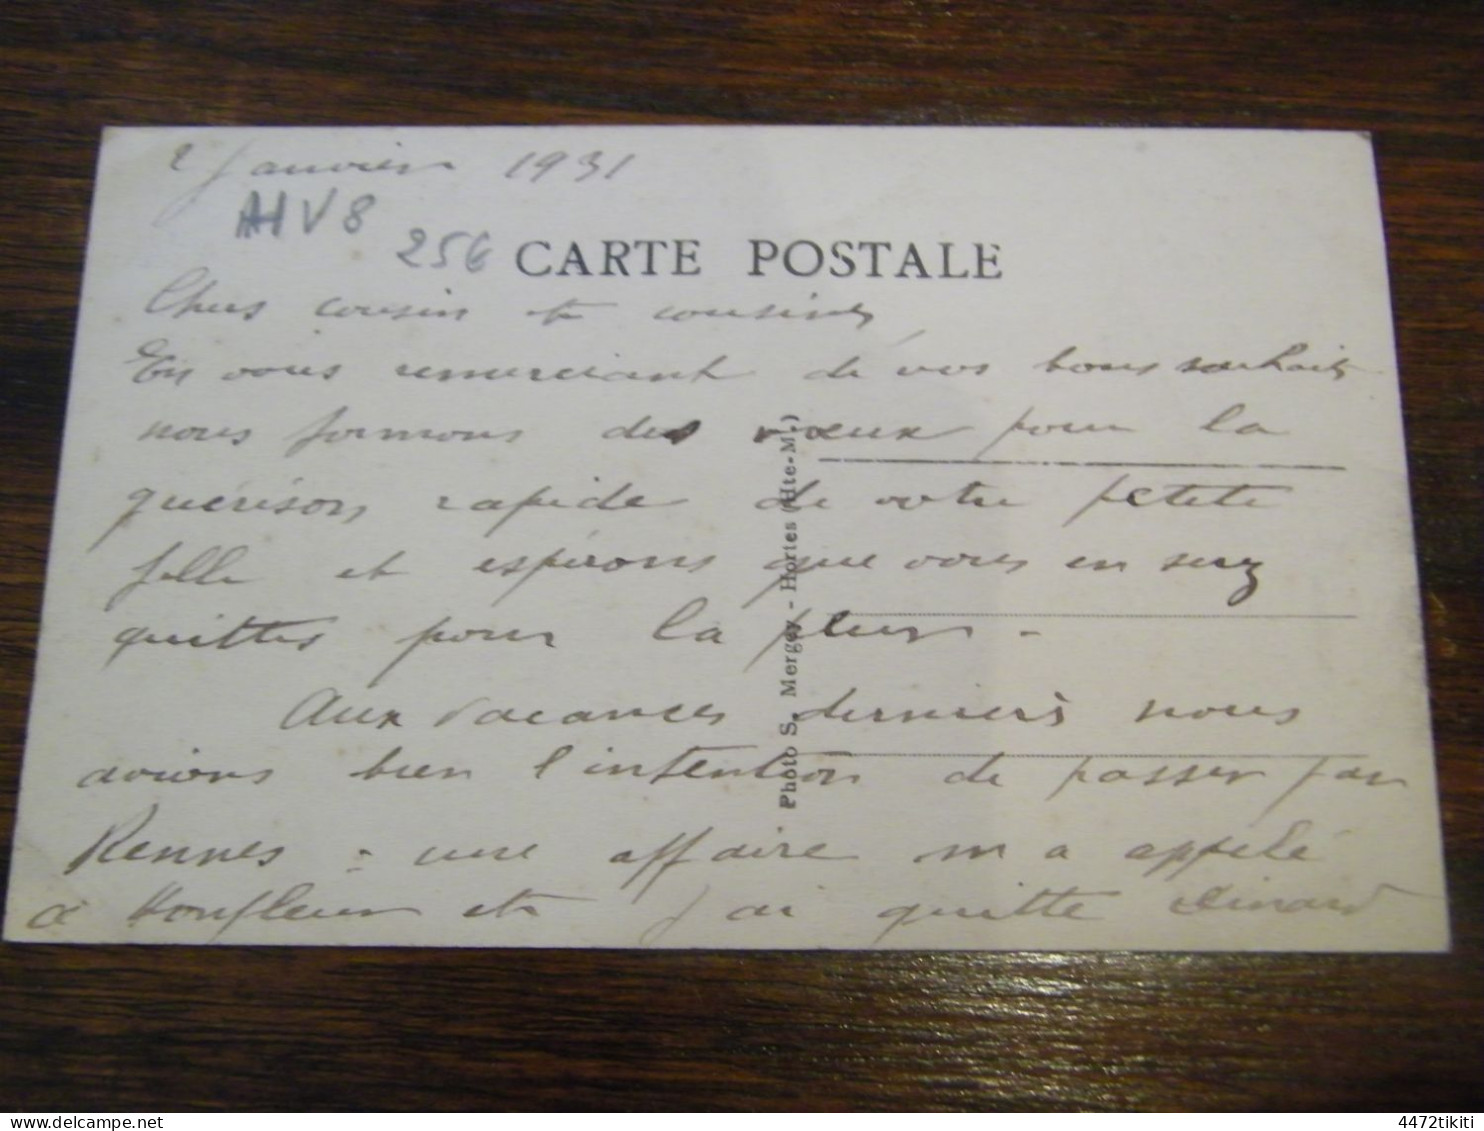 2 Janvier 1931
AHV8
25€
CARTE POSTALE
Chers cousin et cousines,
En vous remerciant de vos bons souhaits
nous formons des vœux pour la
guérison rapide de votre petite
fille et espérons que vous en serez
quittes pour la peur -
Aux vacances dernières nous
avions bien l'intention de passer par
Rennes - une affaire m'a appelé
à Honfleur et j'ai quitté Dinard
Photo S. Mergey - Hortes (Hte-M.)
4472tikiti